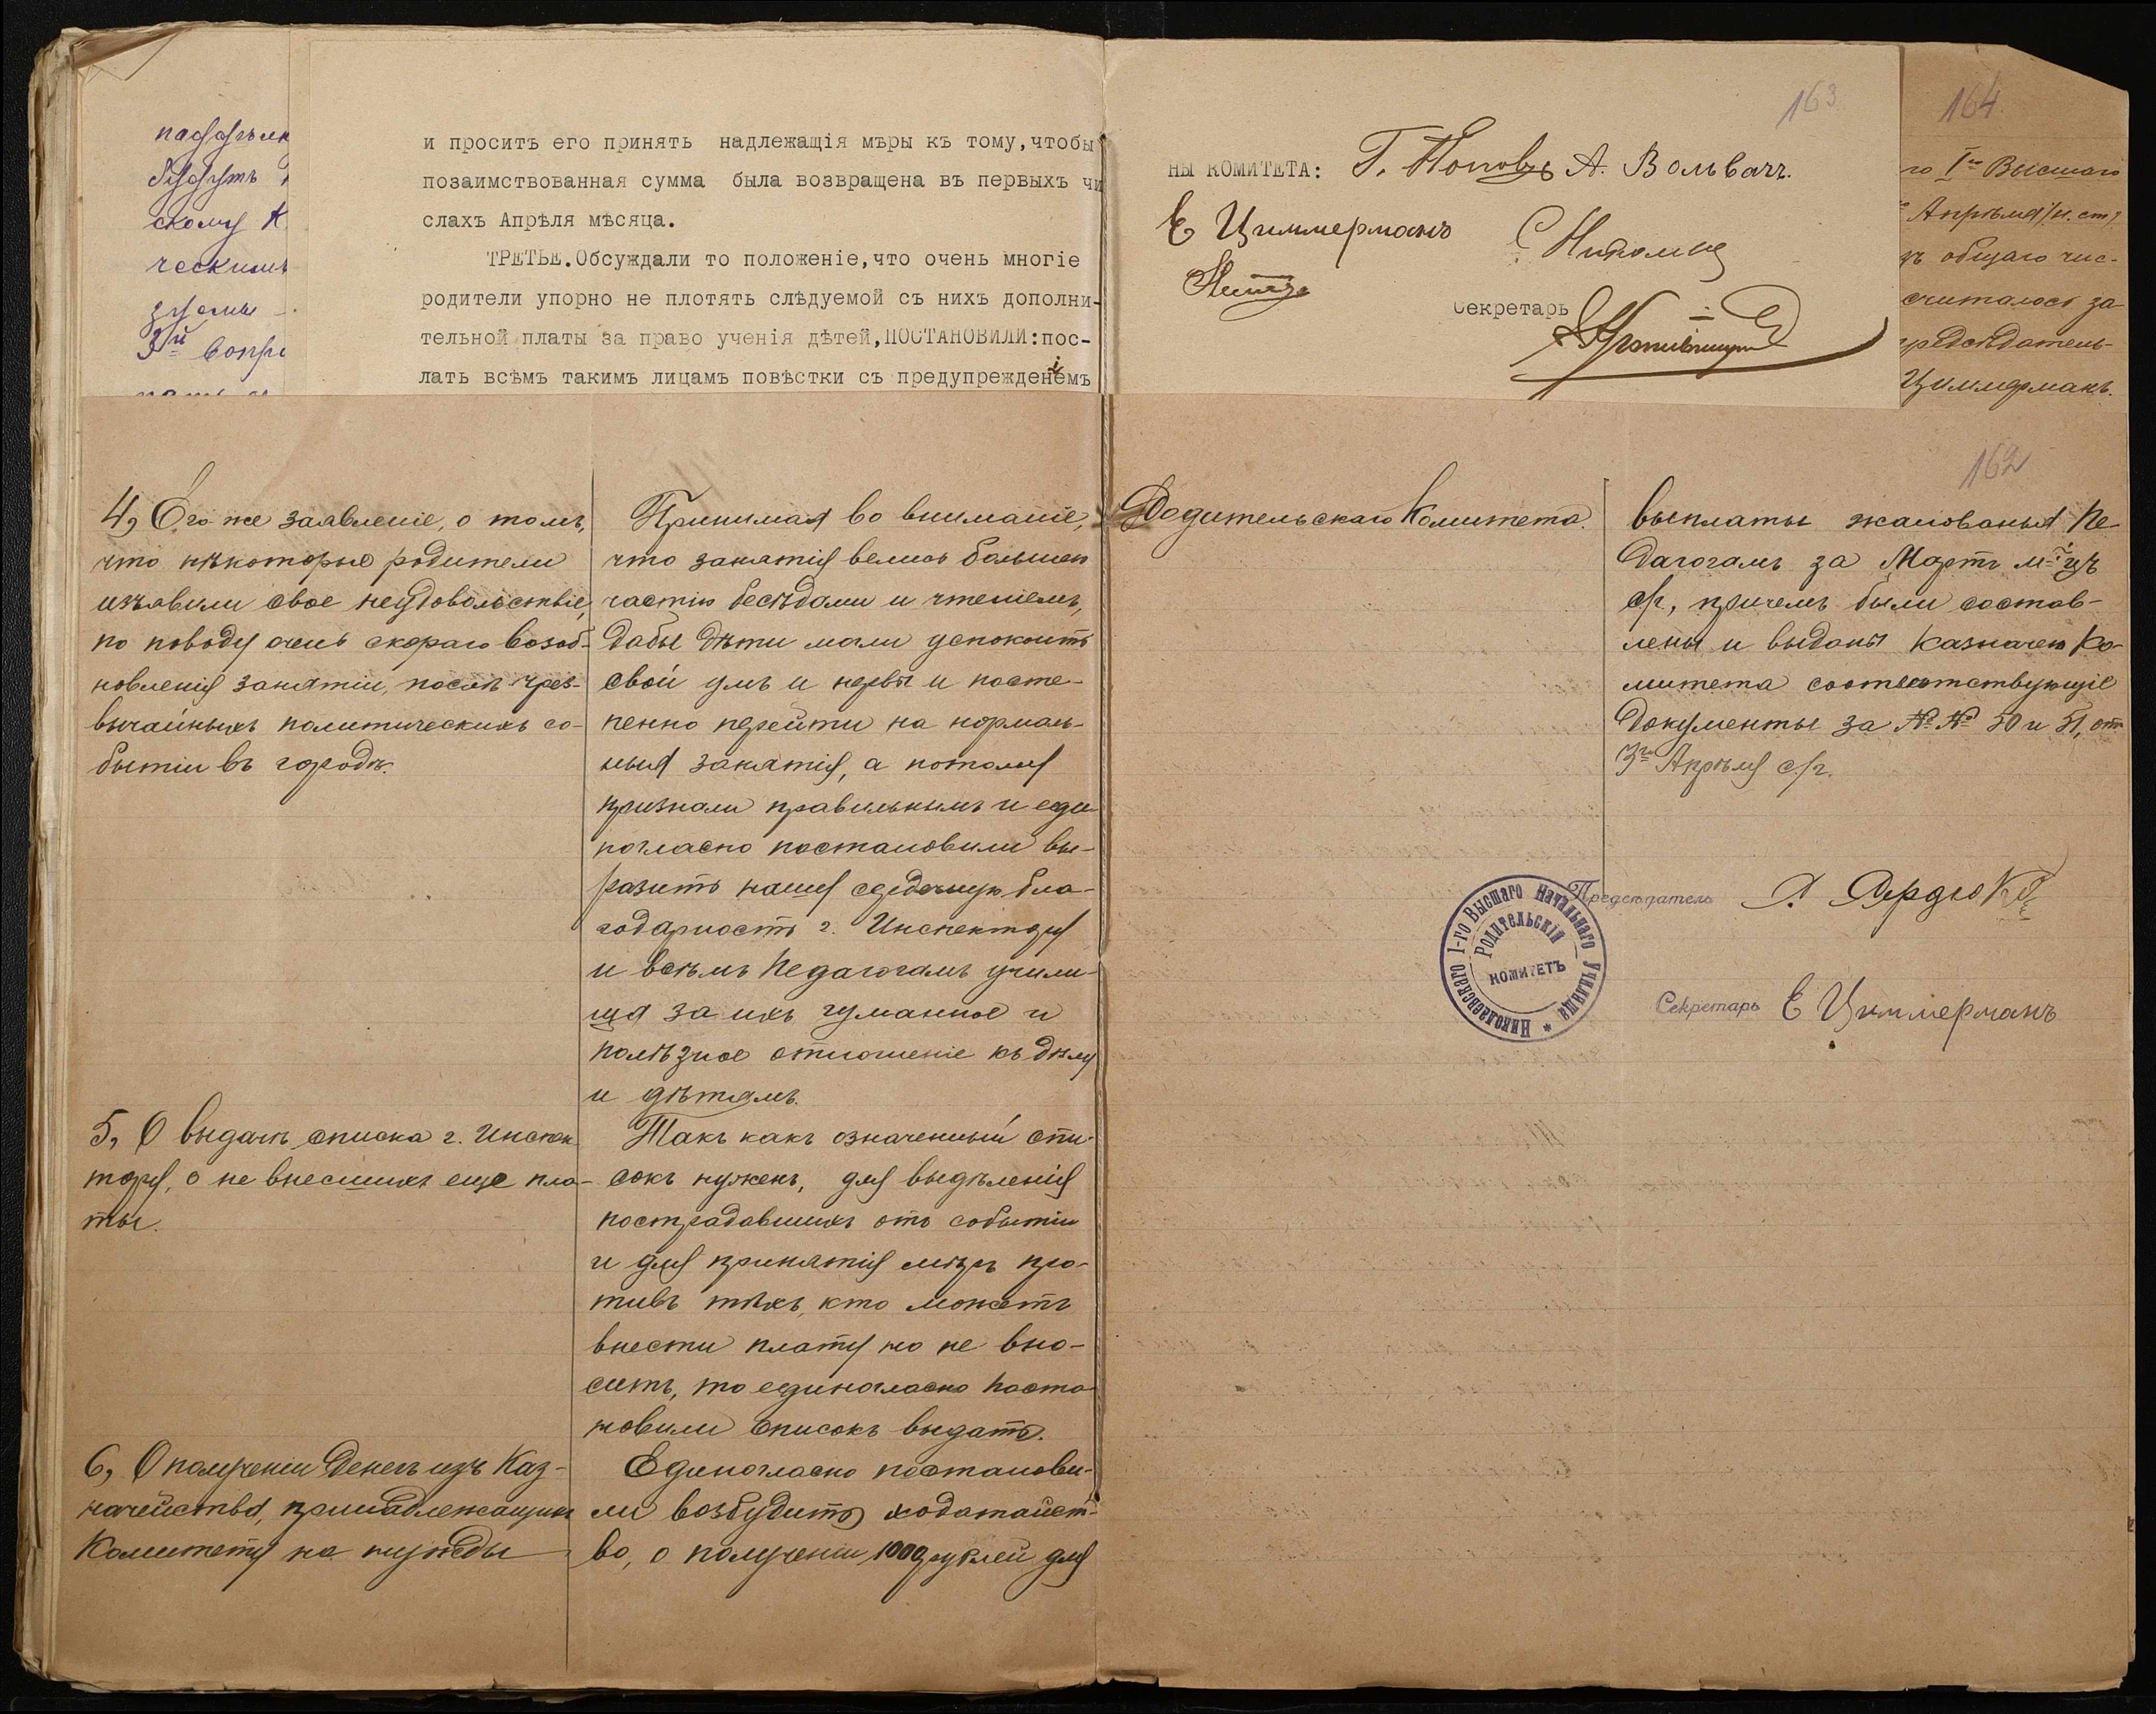 паддѣлк
будутъ
скому К
ческимъ
3й вопро
и проситъ его принять надлежащія мѣры къ тому,чтобы
позаимствованная сумма была возвращена въ первыхъ чи
слахъ Апрѣля мѣсяца.
ТРЕТЬЕ.Обсуждали то положеніе,что очень многіе
родители упорно не плотять слѣдуемой съ нихъ дополни-
тельной платы за право ученія дѣтей,ПОСТАНОВИЛИ:пос-
лать всѣмъ такимъ лицамъ повѣстки съ предупрежденіемъ
163
НЫ КОМИТЕТА: Г. Поповъ А. Вольвач.
Е Циммерманъ
Секретарь
164
го Iго Высшаго
Апрѣля/н. ст,
зъ общаго чис-
считалось за
редсѣдатель-
Циммерманъ.
4, Его же заявленіе, о томъ,
что нѣкоторые родители
изъявили свое неудовольствіе,
по поводу очень скораго возоб-
новленія занятіи, послѣ чрез-
вычайныхъ политическихъ со-
бытіи въ городѣ.
Принимая во вниманіе,
что занятія велись большею
частію бесѣдами и чтеніемъ,
дабы дѣти могли успокоить
свой умъ и нервы и посте-
пенно перейти на нормаль-
ныя занятія, а потому
признали правильнымъ и еди
ногласно постановили вы-
разить нашу сердечную бла-
годарность г. Инспектору
и всѣмъ Педагогамъ учили-
ща за ихъ гуманное и
полѣзное отношеніе къ дѣлу
и дѣтямъ.
5, О выдачѣ списка г. Инспек
тору, о не внесшихъ еще пла-
ты.
Такъ какъ означенный спи-
сокъ нуженъ, для выдѣленія
пострадавшихъ отъ событіи
и для принятія мѣръ про-
тивъ тѣхъ, кто можетъ
внести плату но не вно-
ситъ, то единогласно поста
новили списокъ выдать.
6, О полученіи денегъ изъ Каз-
начейства, принадлежащихъ
Комитету на нужды
Единогласно постанови-
ли возбудить ходатайст-
во, о полученіи 1000 рублей для
162
Родительскаго Комитета.
выплаты жалованья Пе-
дагогамъ за Мартъ м-цъ
с/г, причемъ были состав-
лены и выданы Казначею Ко-
митета соотвѣтствующіе
документы за №№ 50 и 51, отъ
3го Апрѣля с/г.
Николаевскаго 1-го Высшаго Начальнаго Училища
РОДИТЕЛЬСКІЙ
КОМИТЕТЪ
Предсѣдатель А. Сердюк
Секретарь Е Циммерманъ